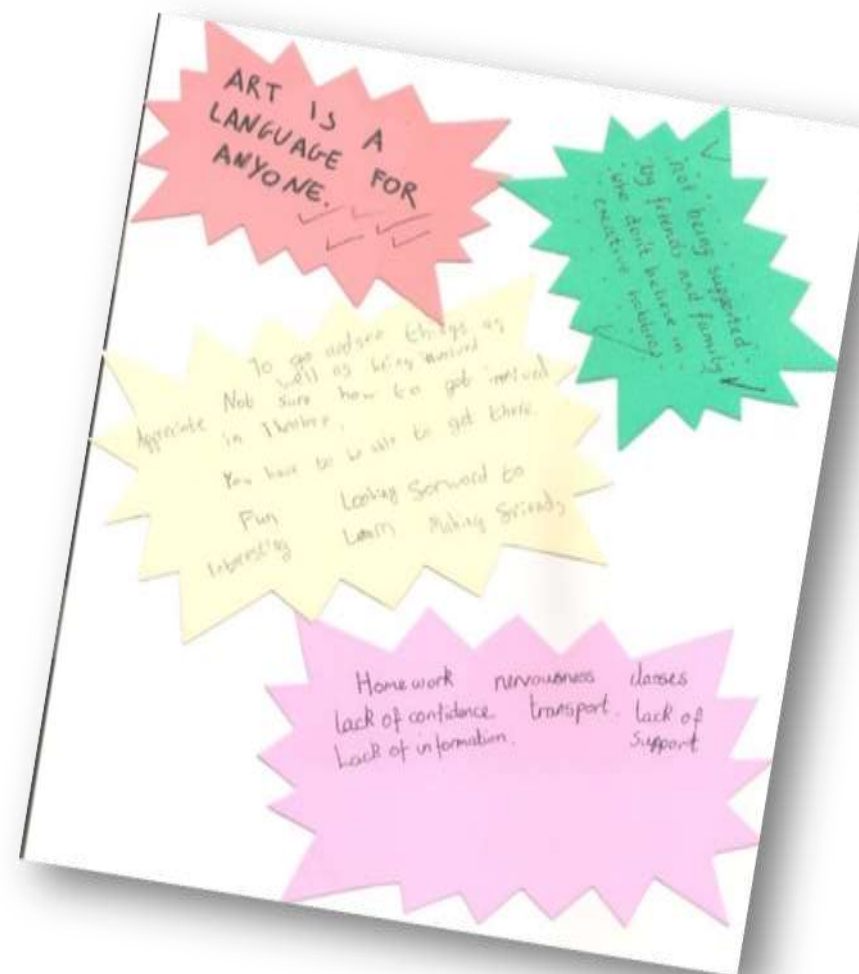 ART IS A
LANGUAGE FOR
ANYONE.
not being supported
by friends and family
who don't believe in
creative hobbies.
To go and see things as
well as being involved
Appreciate Not sure how to get involved
in Theatre.
You have to be able to get there.
Fun Looking forward to
Interesting Learn Making friends
Homework nervousness classes
lack of confidence transport. lack of
Lack of information. support